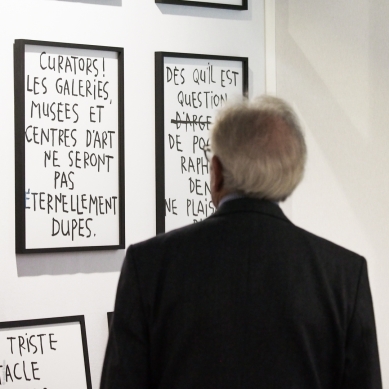 CURATORS!
LES GALERIES,
MUSÉES ET
CENTRES D'ART
NE SERONT
PAS
ÉTERNELLEMENT
DUPES.
DÈS QU'IL EST
QUESTION
D'ARGE
DE PO
RAPH
DEN
NE PLAIS
TRISTE
TACLE